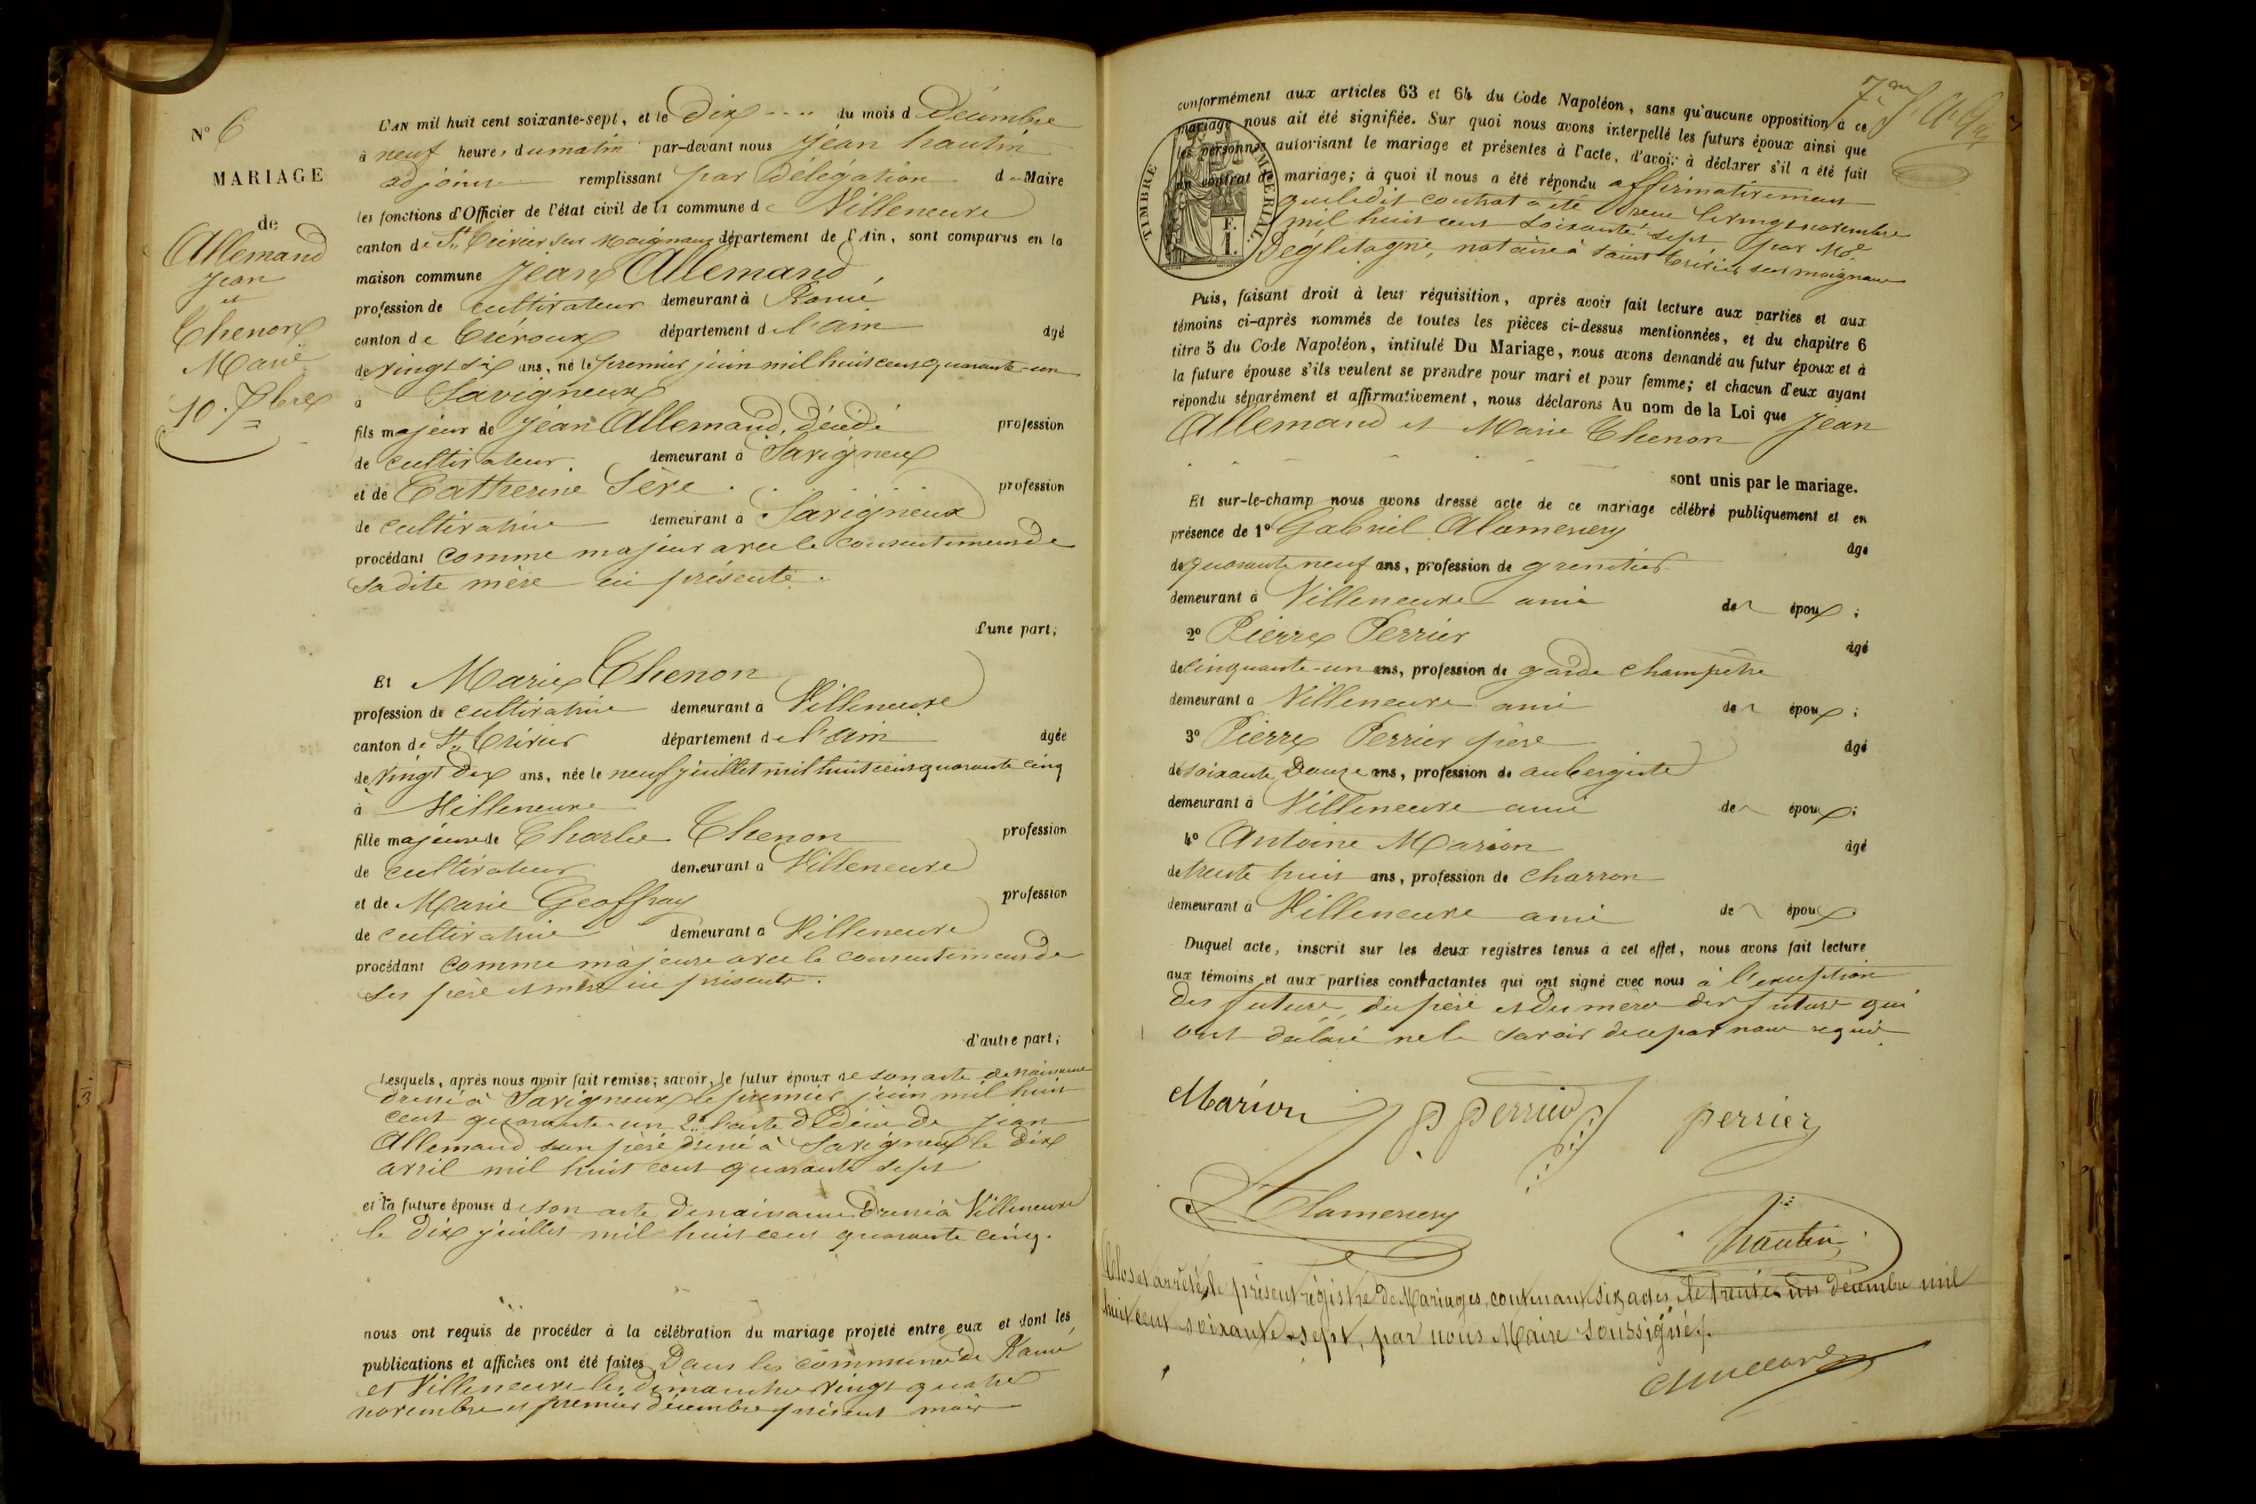 N° 6
MARIAGE
de
Allemand
Jean
et
Thenon
Marie
10. Xbre
L'AN mil huit cent soixante-sept, et le Dix du mois d Décembre
à neuf heures du matin par-devant nous Jean hautin
adjoint remplissant par délégation du Maire
les fonctions d'Officier de l'état civil de la commune de Villeneuve
canton de St Trivier sur Moignans département de l'Ain, sont comparus en la
maison commune Jean Allemand,
profession de cultivateur demeurant à Rancé
canton de Trévoux département de l'ain âgé
de vingt six ans, né le premier juin mil huit cent quarante-un
à Savigneux
fils majeur de Jean Allemand, décédé profession
de cultivateur. demeurant à Savigneux
et de Catherine Sève. profession
de cultivatrice demeurant à Savigneux
procédant comme majeur avec le consentement de
sa dite mère ici présente.
d'une part;
Et Marie Thenon
profession de cultivatrice demeurant à Villeneuve
canton de St Trivier département de l'ain âgée
de vingt Deux ans, née le neuf juillet mil huit cent quarante cinq
à Villeneuve
fille majeure de Charles Thenon profession
de cultivateur demeurant à Villeneuve
et de Marie Geoffray profession
de cultivatrice demeurant à Villeneuve
procédant comme majeure avec le consentement de
ses père et mère ici présents.
d'autre part;
Lesquels, après nous avoir fait remise; savoir, le futur époux de son acte de naissance
dressé à Savigneux le premier juin mil huit
cent quarante-un 2° l'acte de décès de Jean
Allemand son père dressé à Savigneux le dix
avril mil huit cent quarante sept
et la future épouse de son acte de naissance dressé à Villeneuve
le dix juillet mil huit cent quarante cinq.
nous ont requis de procéder à la célébration du mariage projeté entre eux et dont les
publications et affiches ont été faites Dans les communes de Rancé
et Villeneuve les dimanches vingt quatre
novembre et premier décembre présent mois
conformément aux articles 63 et 64 du Code Napoléon, sans qu'aucune opposition à ce
mariage nous ait été signifiée. Sur quoi nous avons interpellé les futurs époux ainsi que
les personnes autorisant le mariage et présentes à l'acte, d'avoir à déclarer s'il a été fait
un contrat de mariage; à quoi il nous a été répondu affirmativement
que ledit contrat a été reçu le vingt novembre
mil huit cent soixante sept par Me
notaire à saint Trivier sur moignans
TIMBRE IMPÉRIAL
Puis, faisant droit à leur réquisition, après avoir fait lecture aux parties et aux
témoins ci-après nommés de toutes les pièces ci-dessus mentionnées, et du chapitre 6
titre 5 du Code Napoléon, intitulé Du Mariage, nous avons demandé au futur époux et à
la future épouse s'ils veulent se prendre pour mari et pour femme; et chacun d'eux ayant
répondu séparément et affirmativement, nous déclarons Au nom de la Loi que Jean
Allemand et Marie Thenon
sont unis par le mariage.
Et sur-le-champ nous avons dressé acte de ce mariage célébré publiquement et en
présence de 1° Gabriel Alamercery âgé
de quarante neuf ans, profession de
demeurant à Villeneuve ami des époux;
2° Pierre Perrier âgé
de cinquante-un ans, profession de garde champêtre
demeurant à Villeneuve ami des époux;
3° Pierre Perrier père âgé
de soixante Douze ans, profession de aubergiste
demeurant à Villeneuve ami des époux;
4° Antoine Marion âgé
de trente huit ans, profession de charron
demeurant à Villeneuve ami des époux
Duquel acte, inscrit sur les deux registres tenus à cet effet, nous avons fait lecture
aux témoins et aux parties contractantes qui ont signé avec nous à l'exception
des future, du père et du mère des future qui
ont déclaré ne le savoir de ce par nous requis.
Marion P perrier perrier
Alamercery
hautin
Clos et arrêté, le présent régistre de Mariages, contenant six actes, le trente un décembre mil
huit cent soixante-sept, par nous Maire soussigné.